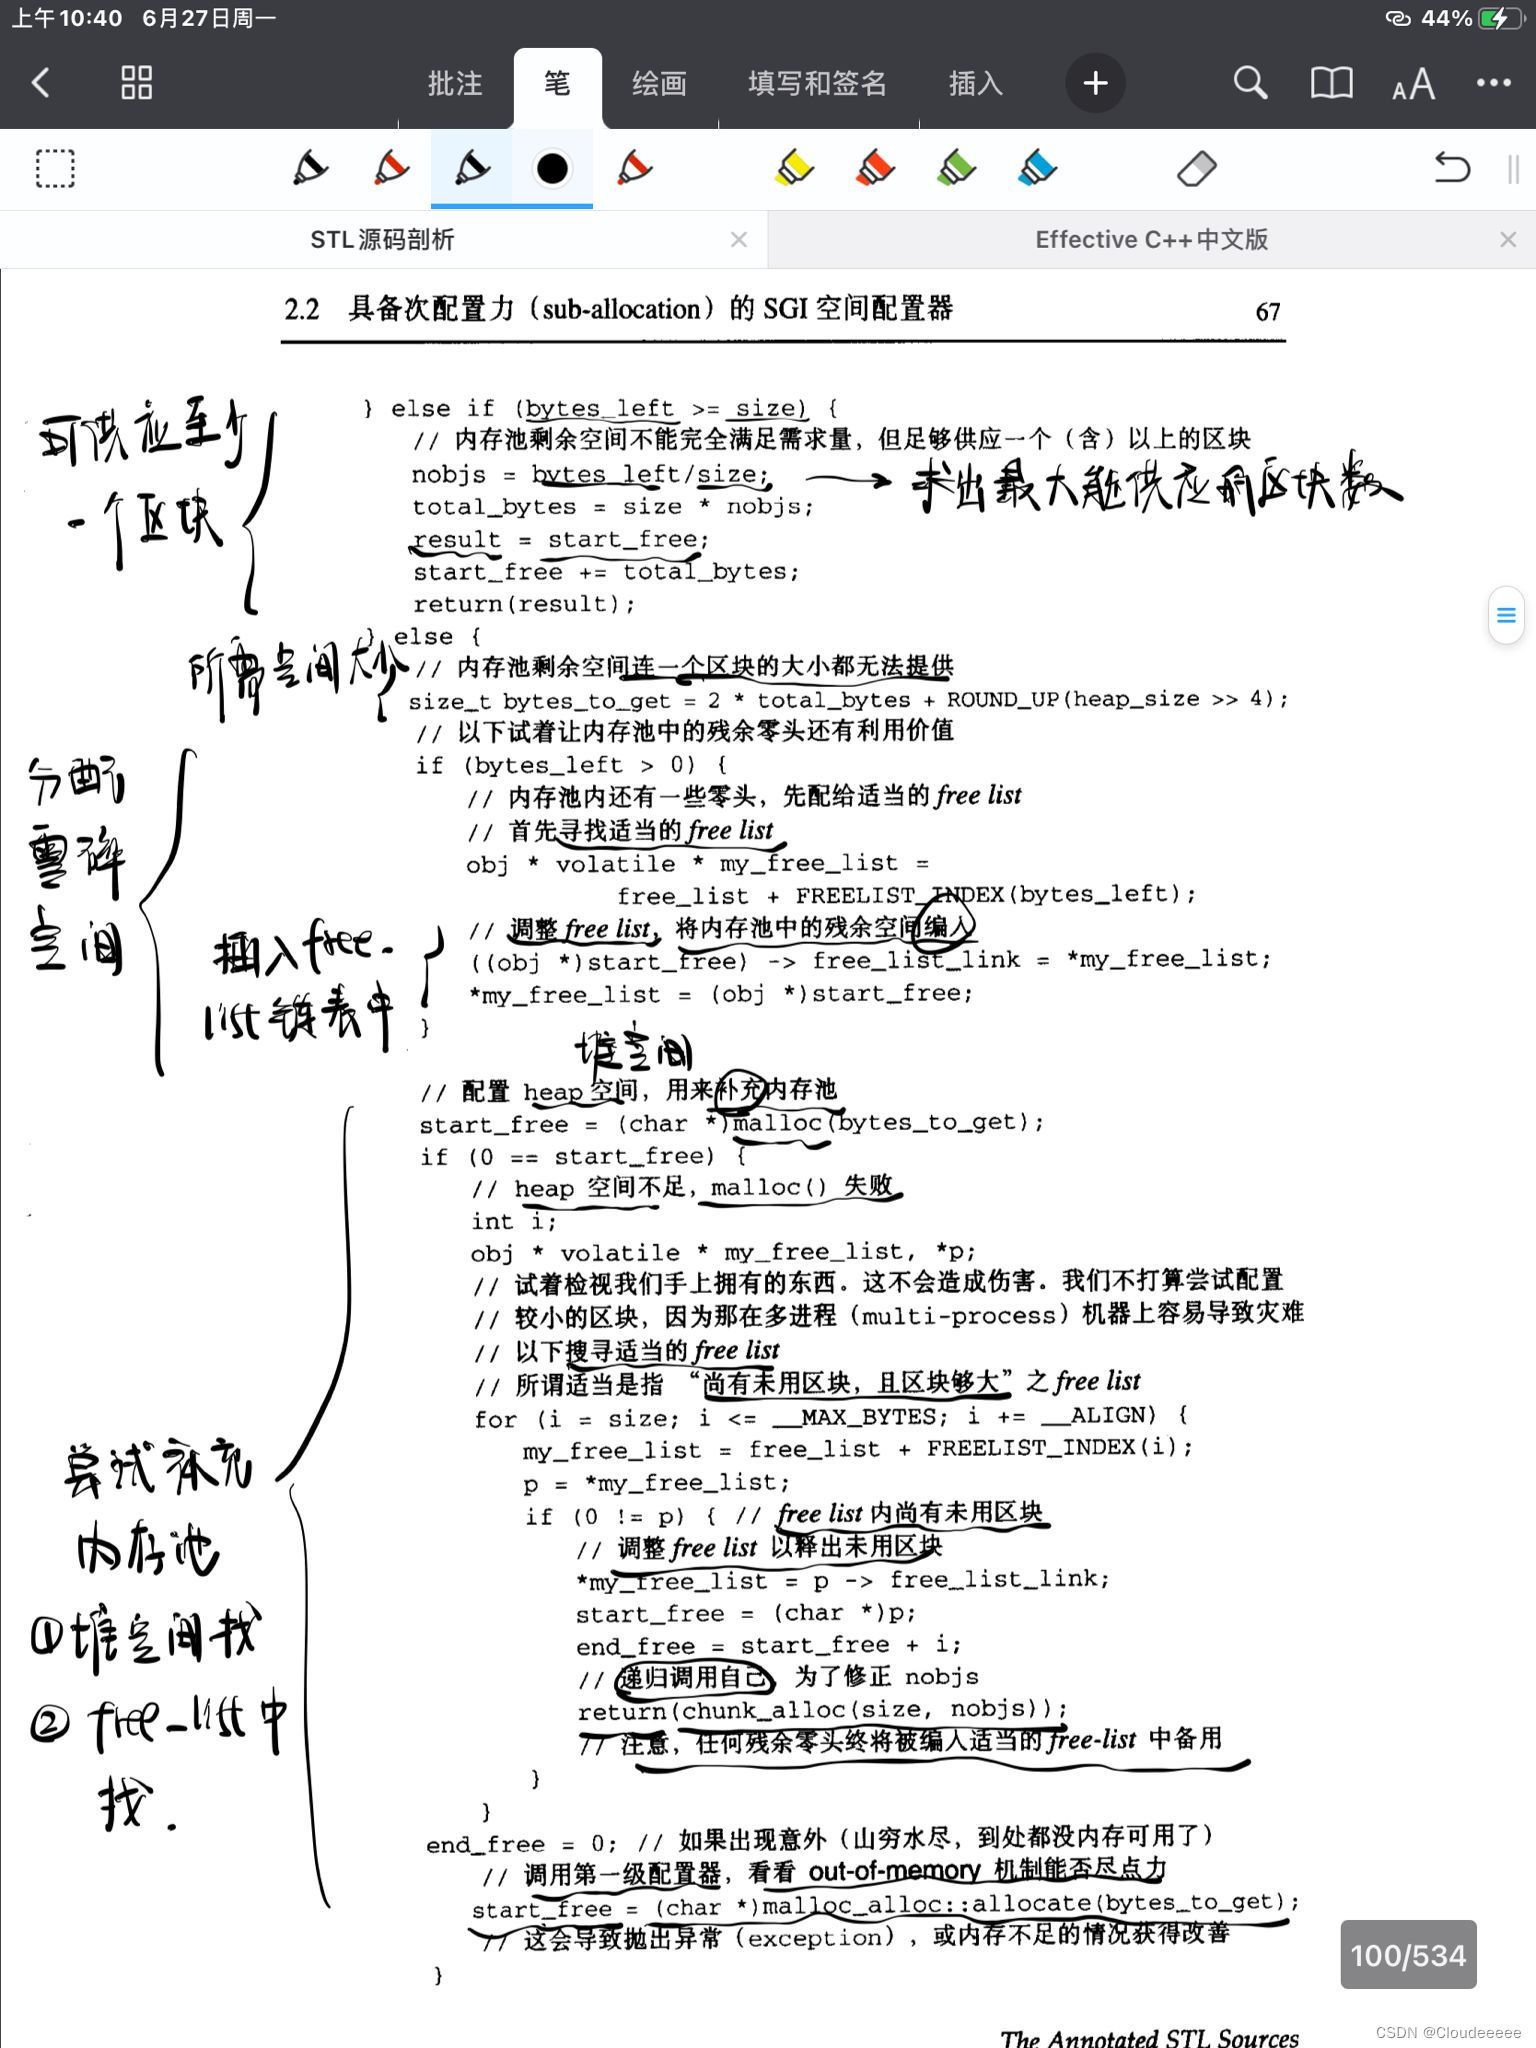 上午10:40 6月27日周一 44%
批注 笔 绘画 填写和签名 插入 AA
STL源码剖析 Effective C++中文版
2.2 具备次配置力（sub-allocation）的 SGI 空间配置器 67
} else if (bytes_left >= size) {
可供应至少
一个区块
// 内存池剩余空间不能完全满足需求量，但足够供应一个（含）以上的区块
nobjs = bytes_left/size; 求出最大能供应的区块数
total_bytes = size * nobjs;
result = start_free;
start_free += total_bytes;
return(result);
} else {
所需空间大小
// 内存池剩余空间连一个区块的大小都无法提供
size_t bytes_to_get = 2 * total_bytes + ROUND_UP(heap_size >> 4);
// 以下试着让内存池中的残余零头还有利用价值
if (bytes_left > 0) {
分配
零碎
空间
// 内存池内还有一些零头，先配给适当的 free list
// 首先寻找适当的 free list
obj * volatile * my_free_list =
free_list + FREELIST_INDEX(bytes_left);
// 调整 free list，将内存池中的残余空间编入
插入free-
list链表中
((obj *)start_free) -> free_list_link = *my_free_list;
*my_free_list = (obj *)start_free;
}
堆空间
// 配置 heap 空间，用来补充内存池
start_free = (char *)malloc(bytes_to_get);
if (0 == start_free) {
// heap 空间不足，malloc() 失败
int i;
obj * volatile * my_free_list, *p;
// 试着检视我们手上拥有的东西。这不会造成伤害。我们不打算尝试配置
// 较小的区块，因为那在多进程（multi-process）机器上容易导致灾难
// 以下搜寻适当的 free list
// 所谓适当是指 “尚有未用区块，且区块够大” 之 free list
for (i = size; i <= __MAX_BYTES; i += __ALIGN) {
my_free_list = free_list + FREELIST_INDEX(i);
尝试补充
内存池
①堆空间找
②free_list中
找.
p = *my_free_list;
if (0 != p) { // free list 内尚有未用区块
// 调整 free list 以释出未用区块
*my_free_list = p -> free_list_link;
start_free = (char *)p;
end_free = start_free + i;
// 递归调用自己，为了修正 nobjs
return(chunk_alloc(size, nobjs));
// 注意，任何残余零头终将被编入适当的 free-list 中备用
}
}
end_free = 0; // 如果出现意外（山穷水尽，到处都没内存可用了）
// 调用第一级配置器，看看 out-of-memory 机制能否尽点力
start_free = (char *)malloc_alloc::allocate(bytes_to_get);
// 这会导致抛出异常（exception），或内存不足的情况获得改善
}
100/534
The Annotated STL Sources
CSDN @Cloudeeeee